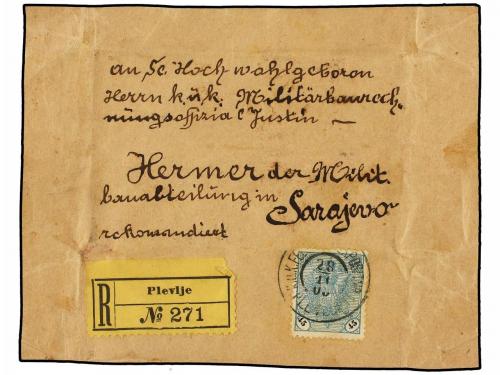 an Sc. Hoch wohlgeboren
Herrn k.u.k. Militärbaurech-
nungsoffizial Justin —
Hermer der Milit.
bauabteilung in
Sarajevo
rekomandiert
R
Plevlje
№ 271
28
45
45